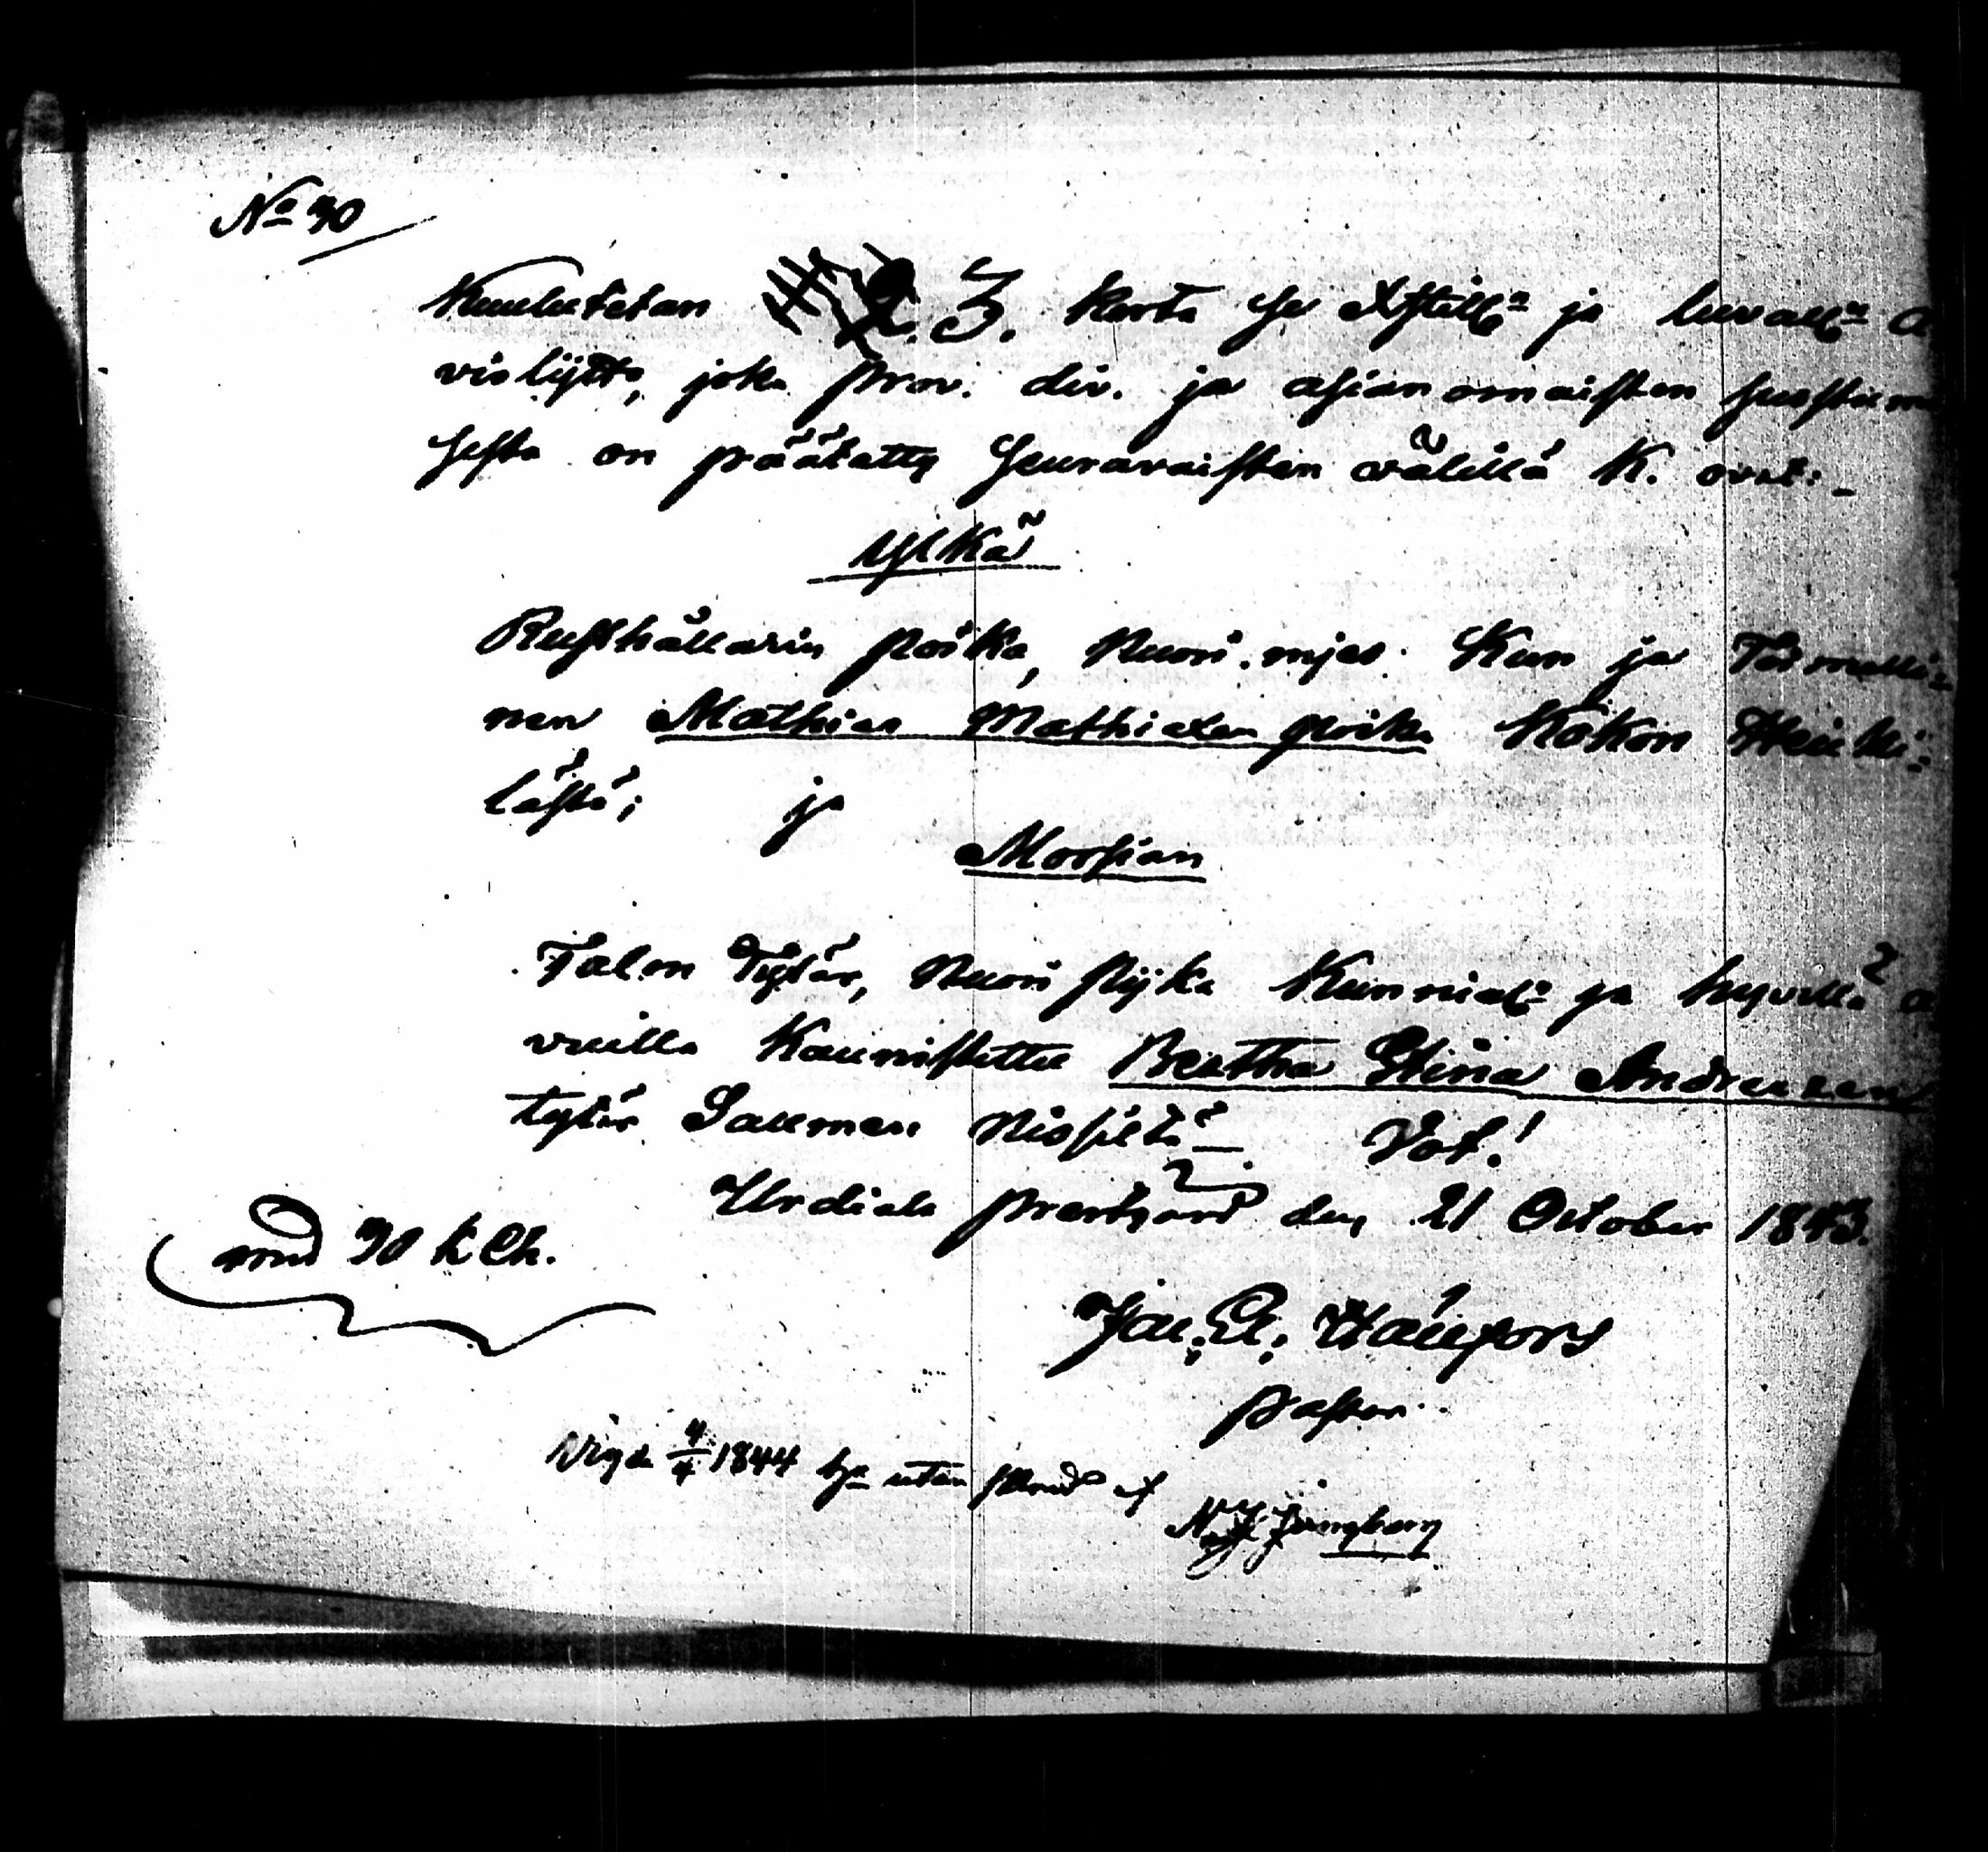 No 30
Kuulutetan 2. 3. kerta se Xstill: ja luvall:
violijtto, joka prov. div. ja asianomaisten suostum
sesta on päätetty seuravaisten välillä K. ovat:
Ylkä
Rusthållarin poika, Nuori mjes Kun ja Toimelli:
nen Mathias Mathiaxen poika Kokon Heikki:
lästä; ja
Morsian
Talon Tytär, Nuori pijka Kunnial: ja hyvillä a
vuilla kaunistettu Bertha Stina Andreaxen
tytär Saumen Vot!
Urdiala prestgård den 21 October 1843.
30 k
Jac. Ch. Hällfors
pastor.
Vigde 4/4 1844 utan af